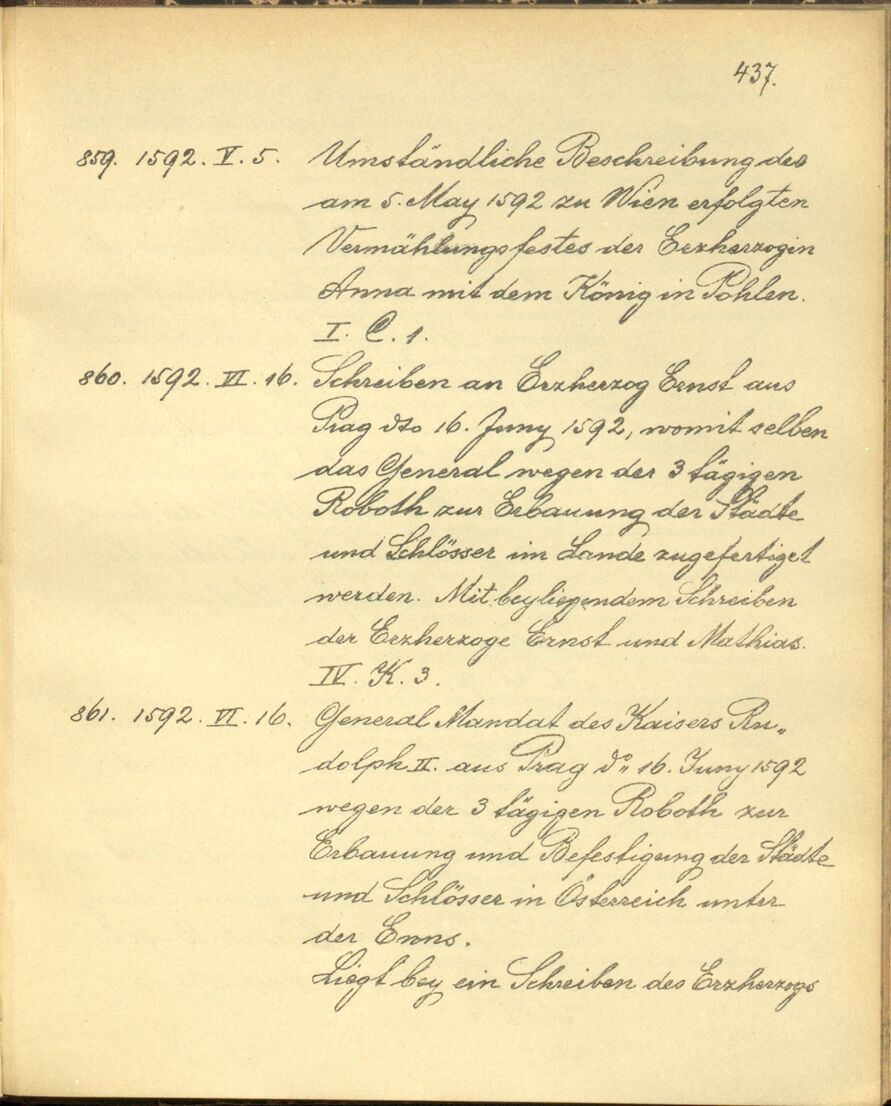 437.
859. 1592. V. 5. Umständliche Beschreibung des
am 5. May 1592 zu Wien erfolgten
Vermählungsfestes der Erzherzogin
Anna mit dem König in Pohlen.
I. C. 1.
860. 1592. VI. 16. Schreiben an Erzherzog Ernst aus
Prag dto 16. Juny 1592, womit selben
das General wegen der 3 tägigen
Roboth zur Erbauung der Städte
und Schlösser im Lande zugefertiget
werden. Mit beyliegendem Schreiben
der Erzherzoge Ernst und Mathias.
IV. K. 3.
861. 1592. VI. 16. General Mandat des Kaisers Ru„
dolph II. aus Prag do„ 16. Juny 1592
wegen der 3 tägigen Roboth zur
Erbauung und Befestigung der Städte
und Schlösser in Österreich unter
der Enns.
Liegt bey ein Schreiben des Erzherzogs